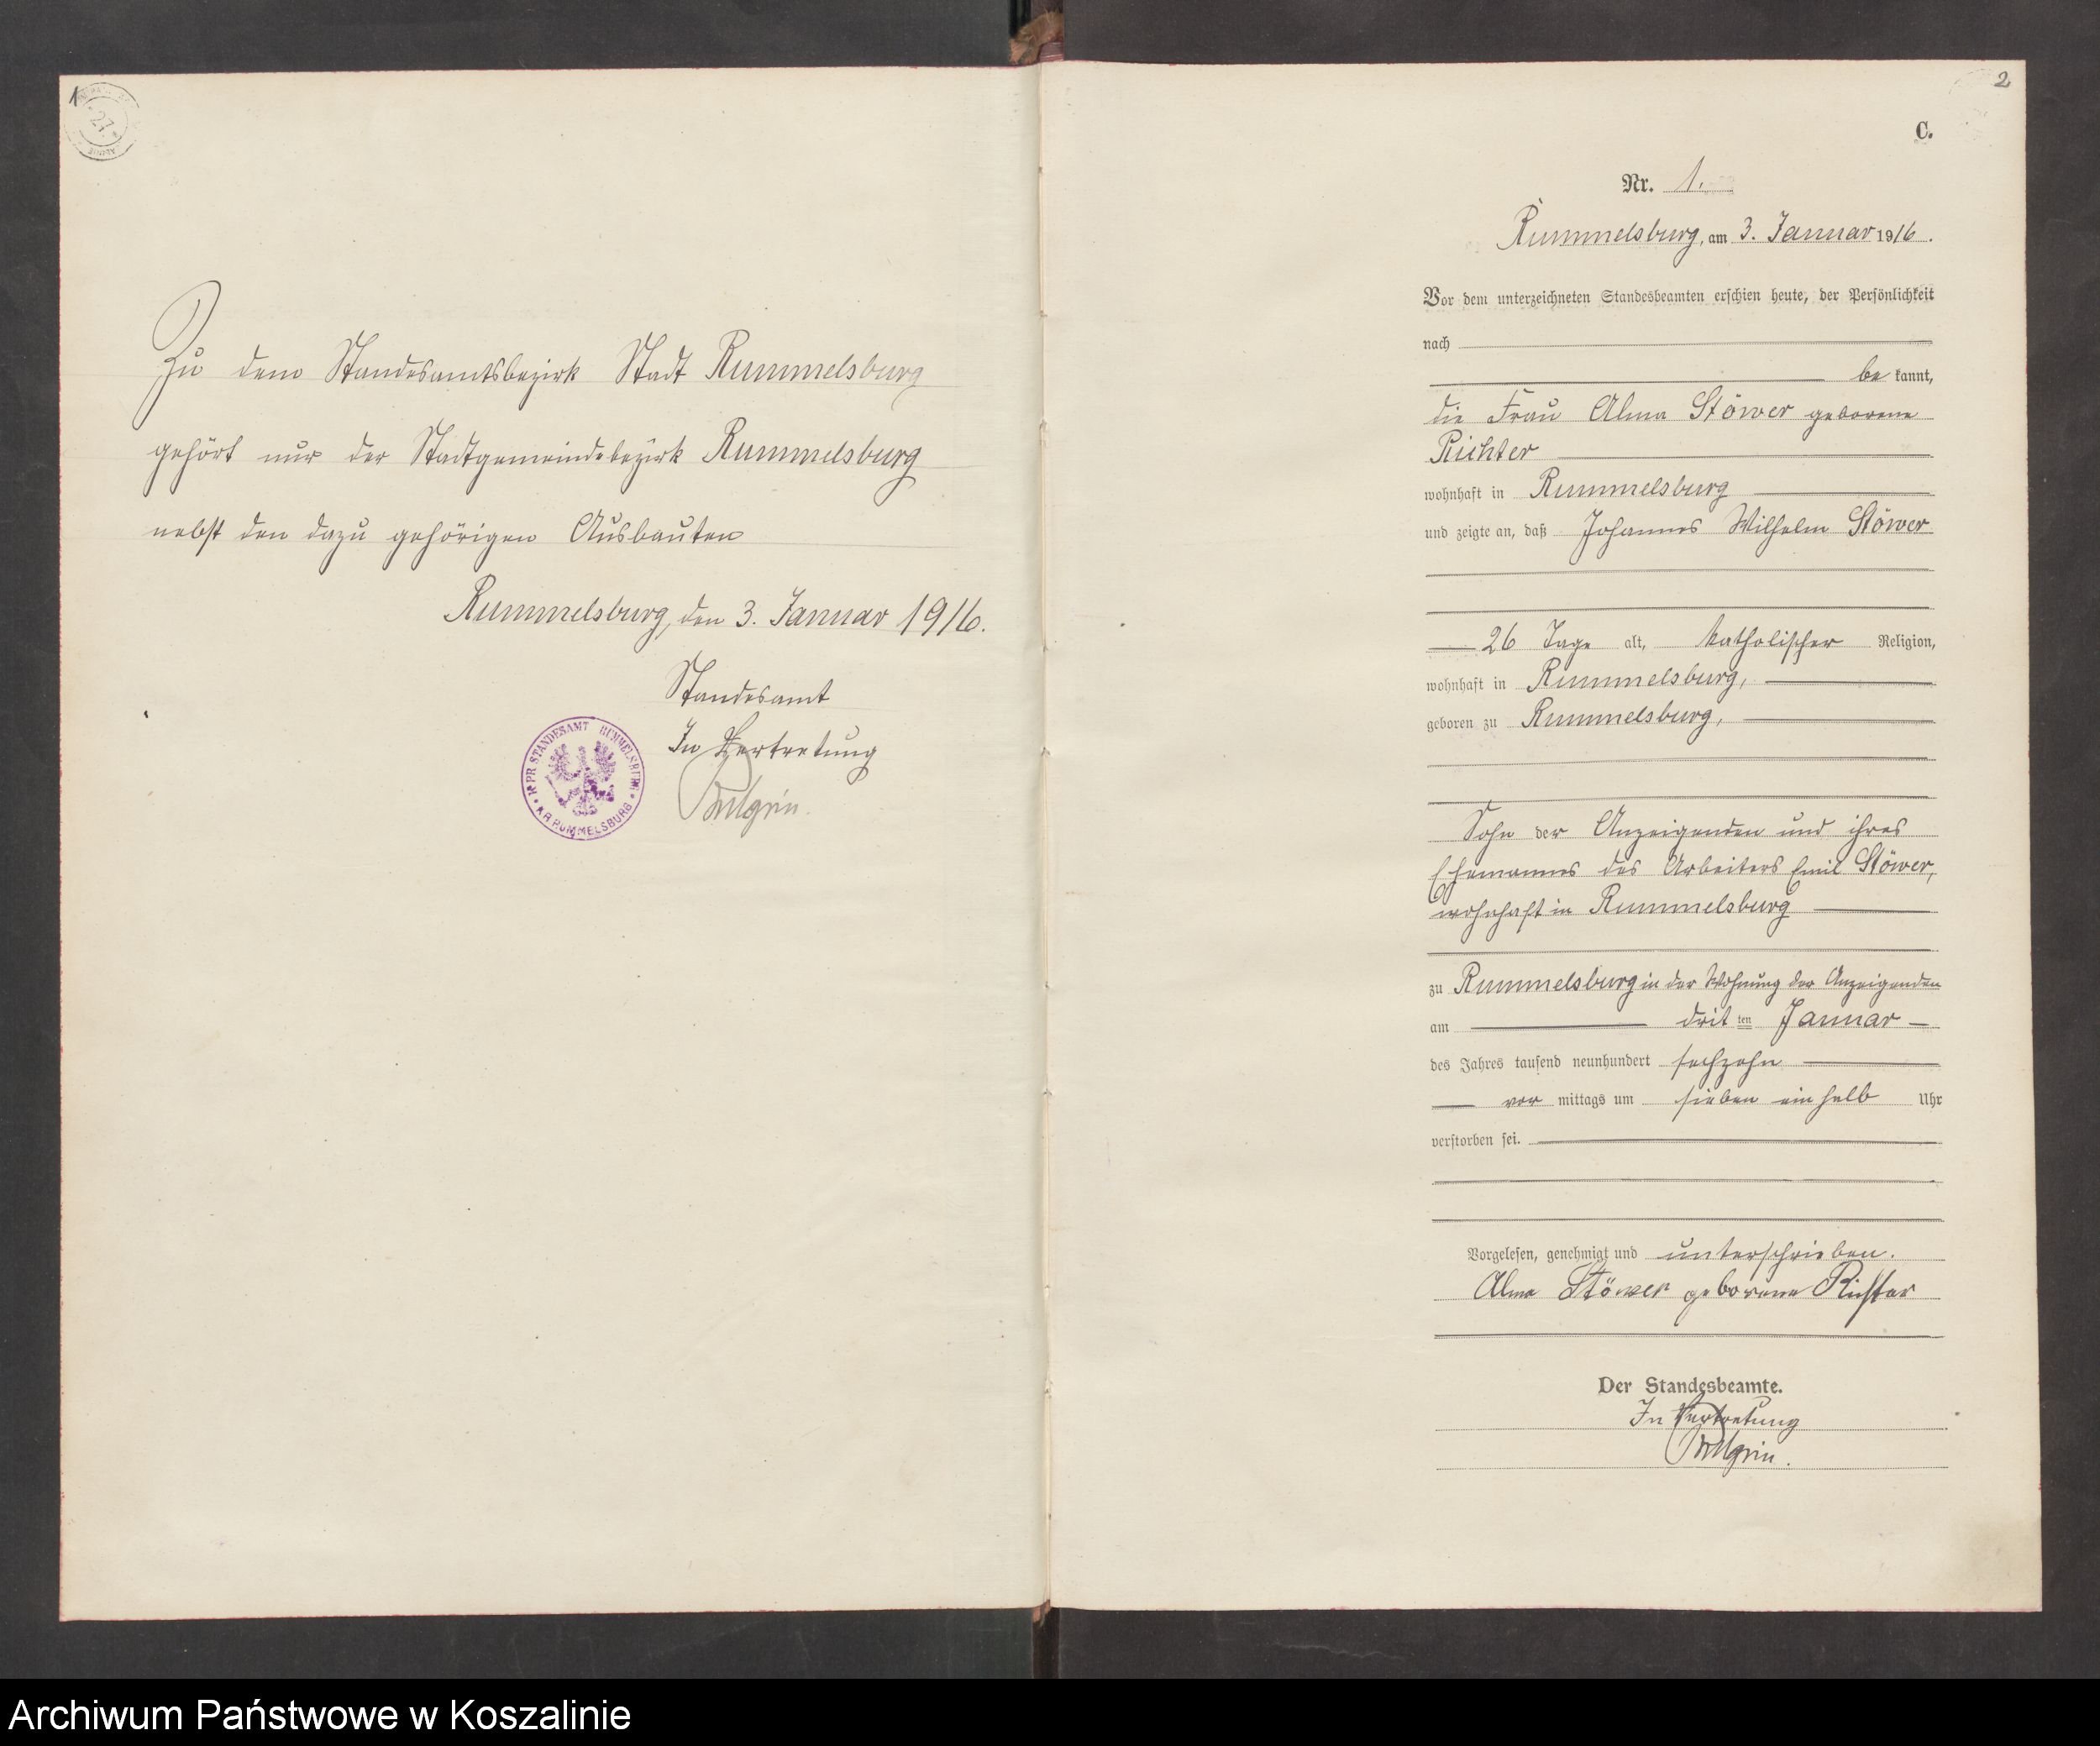 1
27
Zu dem Standesamtsbezirk Stadt Rummelsburg
gehört nur der Stadtgemeindebezirk Rummelsburg
nebst den dazu gehörigen Ausbauten
Rummelsburg, den 3. Januar 1916.
Standesamt
In Vertretung
K. PR. STANDESAMT RUMMELSBURG
KR. RUMMELSBURG
2
C.
Nr. 1.
Rummelsburg, am 3. Januar 1916.
Vor dem unterzeichneten Standesbeamten erschien heute, der Persönlichkeit
nach
be kannt,
die Frau Alma Stöwer geborene
Richter
wohnhaft in Rummelsburg
und zeigte an, daß Johannes Wilhelm Stöwer
26 Tage alt, katholischer Religion,
wohnhaft in Rummelsburg,
geboren zu Rummelsburg,
Sohn der Anzeigenden und ihres
Ehemannes des Arbeiters Emil Stöwer,
wohnhaft in Rummelsburg
zu Rummelsburg in der Wohnung der Anzeigenden
am drit ten Januar
des Jahres tausend neunhundert sechzehn
vor mittags um sieben ein halb Uhr
verstorben sei.
Vorgelesen, genehmigt und unterschrieben.
Alma Stöwer geborene Richter
Der Standesbeamte.
In Vertretung
Archiwum Państwowe w Koszalinie